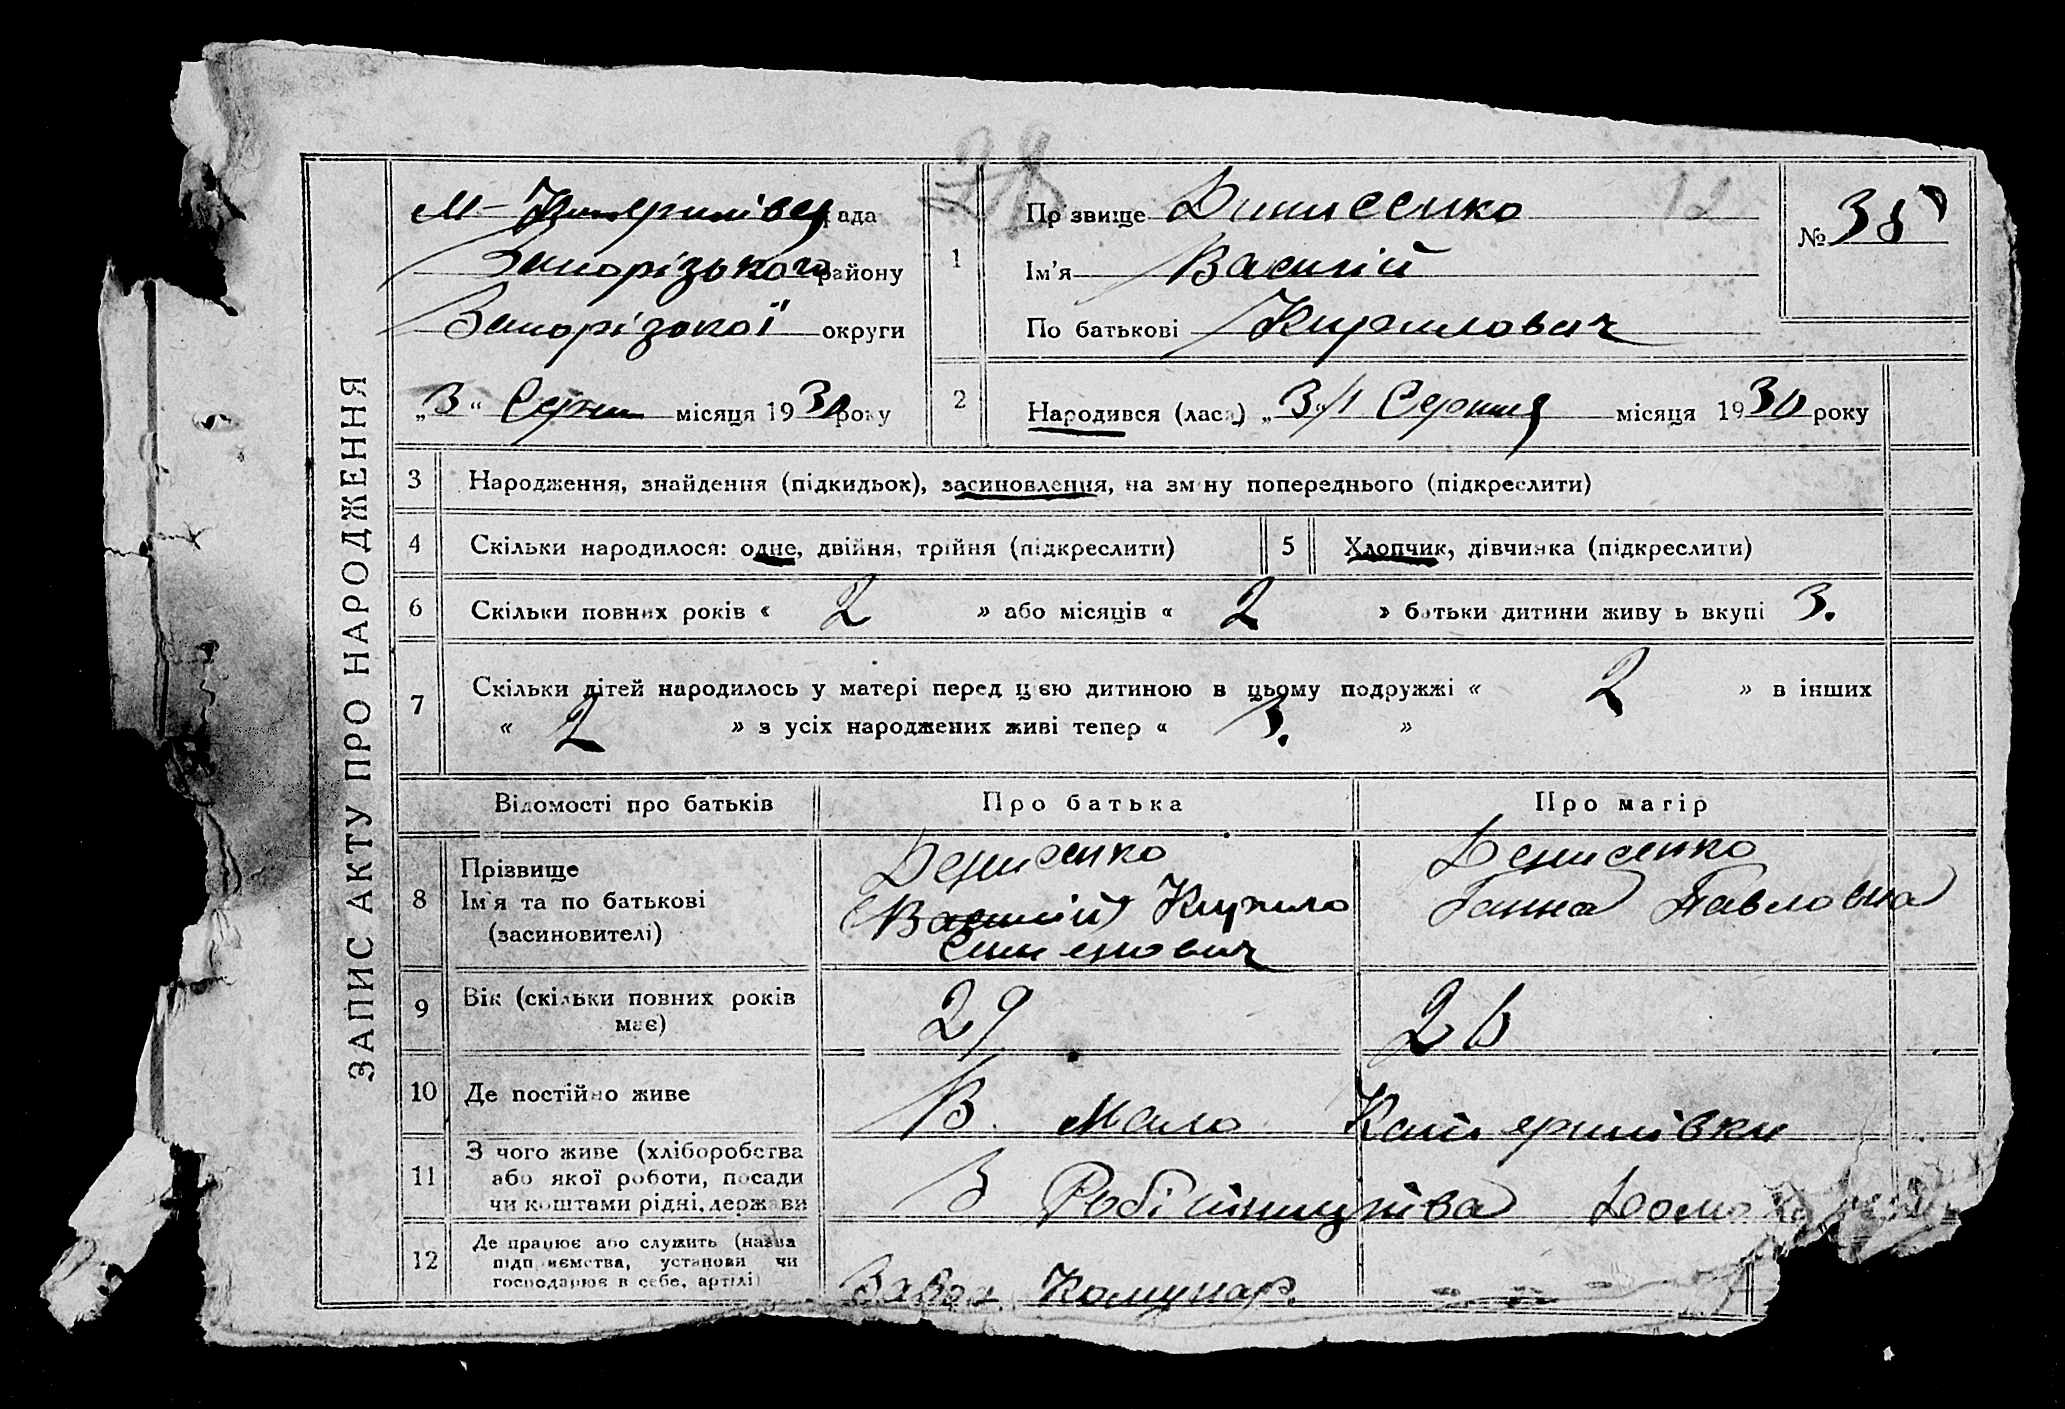 ЗАПИС АКТУ ПРО НАРОДЖЕННЯ
28
12
М-Катеринівська рада
Запорізького району
Запорізької округи
„3“ Серпн місяця 1930 року
1
Прізвище Динисенко
Ім'я Василій
По батькові Кирилович
№ 38
2
Народився (лась) „3/1 Серпня місяця 1930 року
3 Народження, знайдення (підкидьок), засиновлення, на зміну попереднього (підкреслити)
4 Скільки народилося: одне, двійня, трійня (підкреслити)
5 Хлопчик, дівчинка (підкреслити)
6 Скільки повних років « 2 » або місяців « 2 » батьки дитини живуть вкупі 3.
7 Скільки дітей народилось у матері перед цією дитиною в цьому подружжі « 2 » в інших
« 2 » з усіх народжених живі тепер « 3. »
Відомості про батьків Про батька Про матір
8
Прізвище
Ім'я та по батькові
(засиновителі)
Денисенко
(Василий) Кирило
Семенович
Денисенко
Ганна Павловна
9 Вік (скільки повних років
має)
29
26
10 Де постійно живе
В. Мало Катеринівки
11 З чого живе (хліборобства
або якої роботи, посади
чи коштами рідні, держави
З Робітництва
12 Де працює або служить (назва
підприємства, установи чи
господарює в себе, артілі)
Завод Комунар.